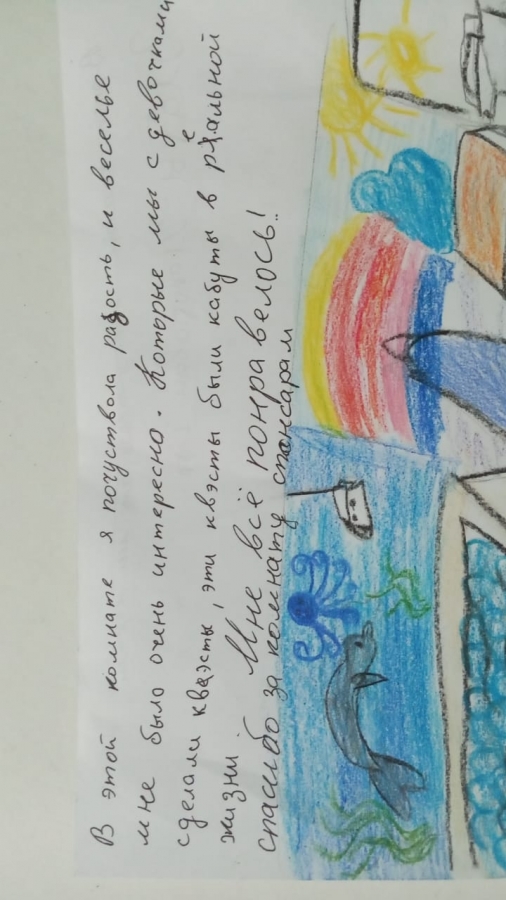 В этой комнате я почуствола радость, и веселье
мне было очень интересно. Которые мы с девочками
сделали квэсты, эти квэсты были кабуты в реальной
жизни. Мне всё понравелось!
спасибо за комнату спонсарам